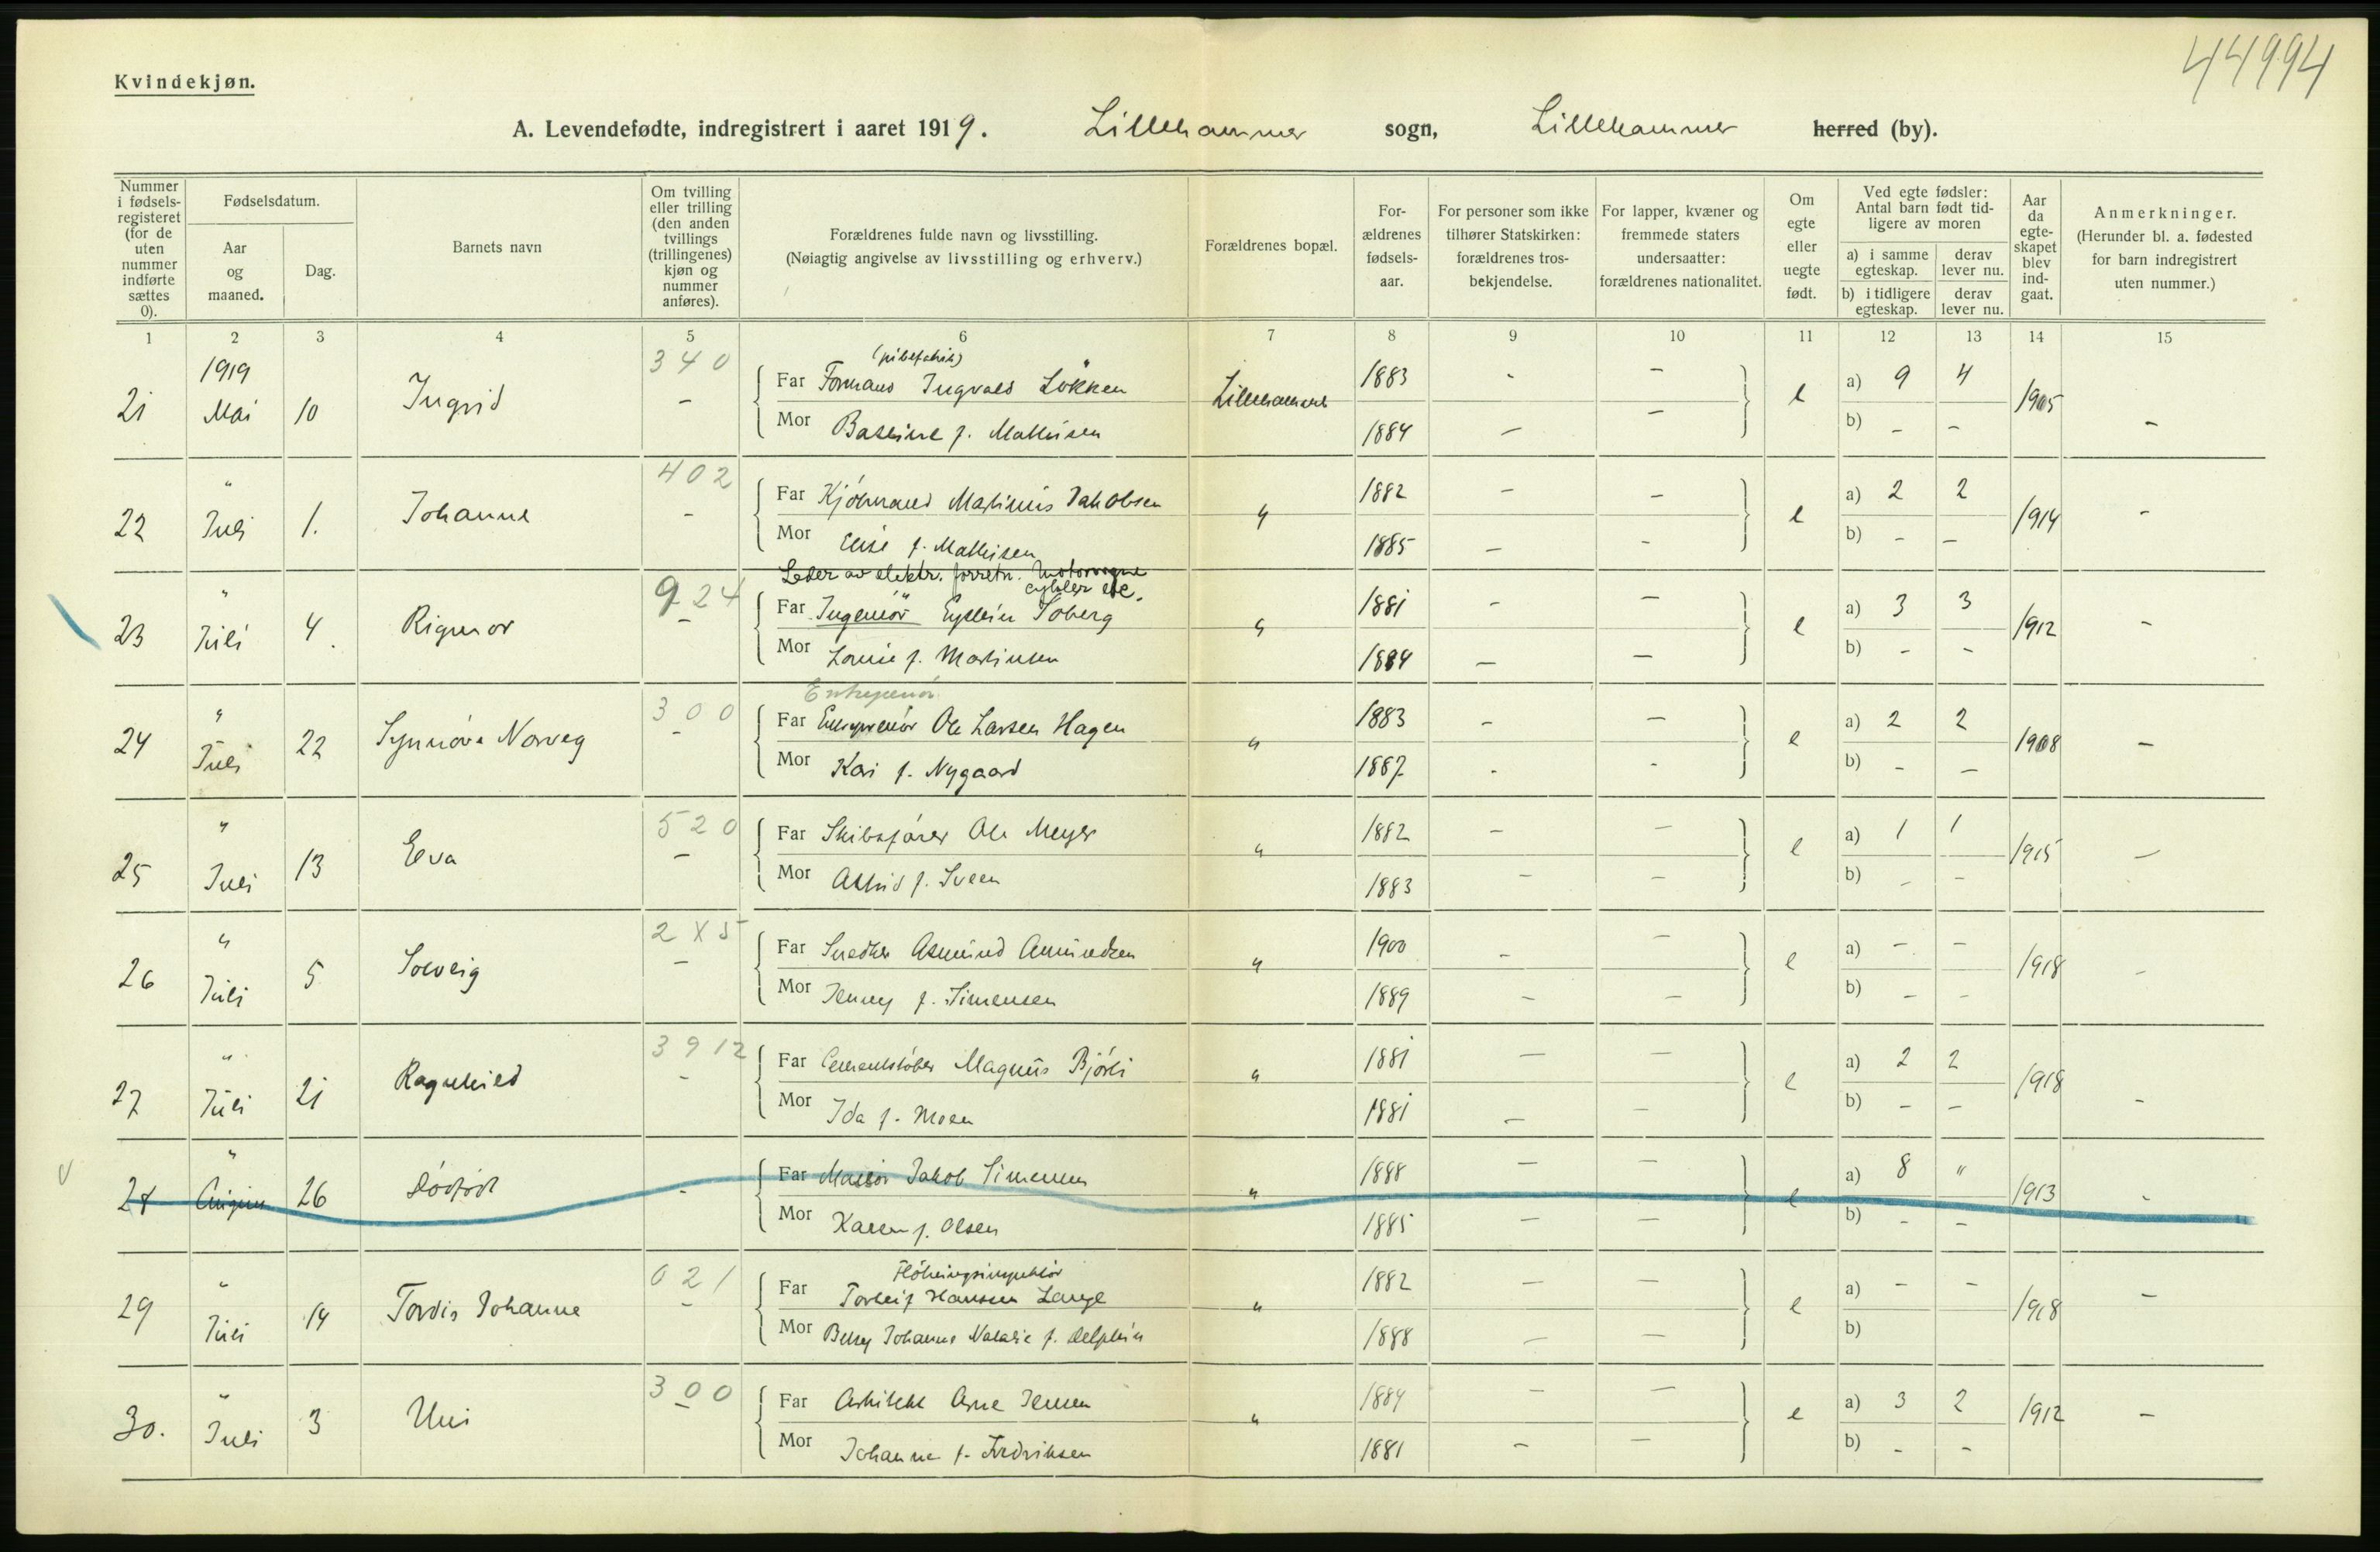 44994
Kvindekjøn.
A. Levendefødte, indregistrert i aaret 1919. Lillehammer sogn, Lillehammer herred (by).
Nummer i fødsels-registeret (for de uten nummer indførte sættes 0).
Fødselsdatum.
Aar og maaned.
Dag.
Barnets navn
Om tvilling eller trilling (den anden tvillings (trillingenes) kjøn og nummer anføres).
Forældrenes fulde navn og livsstilling.
(Nøiagtig angivelse av livsstilling og erhverv.)
Forældrenes bopæl.
For-ældrenes fødsels-aar.
For personer som ikke tilhører Statskirken: forældrenes tros-bekjendelse.
For lapper, kvæner og fremmede staters undersaatter: forældrenes nationalitet.
Om egte eller uegte født.
Ved egte fødsler: Antal barn født tid-ligere av moren
a) i samme egteskap.
derav lever nu.
b) i tidligere egteskap.
derav lever nu.
Aar da egte-skapet blev ind-gaat.
Anmerkninger.
(Herunder bl. a. fødested for barn indregistrert uten nummer.)
1 2 3 4 5 6 7 8 9 10 11 12 13 14 15
340 (pibefabrik)
1919
21 Mai 10 Ingrid - Far Formand Ingvald Løkken Lillehammer 1883 - - e a) 9 4 1905 -
Mor Bastine f. Mathisen 1884 - - b) - -
402
22 " Juli 1. Johanne - Far Kjøbmand Martinius Jakobsen " 1882 - - e a) 2 2 1914 -
Mor Elise f. Mathisen 1885 - - b) - -
924 Leder av elektr. forretn. Motorvogne cykler etc.
23 " Juli 4. Rigmor - Far Ingeniør Eystein Soberg " 1881 - - e a) 3 3 1912 -
Mor Louise f. Martinsen 1884 - - b) - -
300 Entrepenør
24 " Juli 22 Synnøve Norveg - Far Entreprenør Ole Larsen Hagen " 1883 - - e a) 2 2 1908 -
Mor Kari f. Nygaard 1887 - - b) - -
520
25 " Juli 13 Elva - Far Skibsfører Ole Meyer " 1882 - - e a) 1 1 1915 -
Mor Astrid f. Sveen 1883 - - b) - -
2X5
26 " Juli 5 Solveig - Far Snedker Asmund Amundsen " 1900 - - e a) - - 1918 -
Mor Jenny f. Simensen 1889 - - b) - -
3912
27 " Juli 21 Ragnhild - Far Cementstøber Magnus Bjørli " 1881 - - e a) 2 2 1918 -
Mor Ida f. Moen 1881 - - b) - -
v
28 " 26 Dødfødt - Far Jakob Simensen " 1888 - - e a) 8 " 1913 -
Mor Karen f. Olsen 1885 - - b) - -
021 Fløtningsinspektør
29 " Juli 14 Tordis Johanne - Far Torleif Hansen Lange " 1882 - - e a) - - 1918 -
Mor Betsy Johanne Natalie f. Delphin 1888 - - b)
300
30. " Juli 3 Uni - Far Arkitekt Arne Jensen " 1884 - - e a) 3 2 1912 -
Mor Johanne f. Fredriksen 1881 - - b) - -